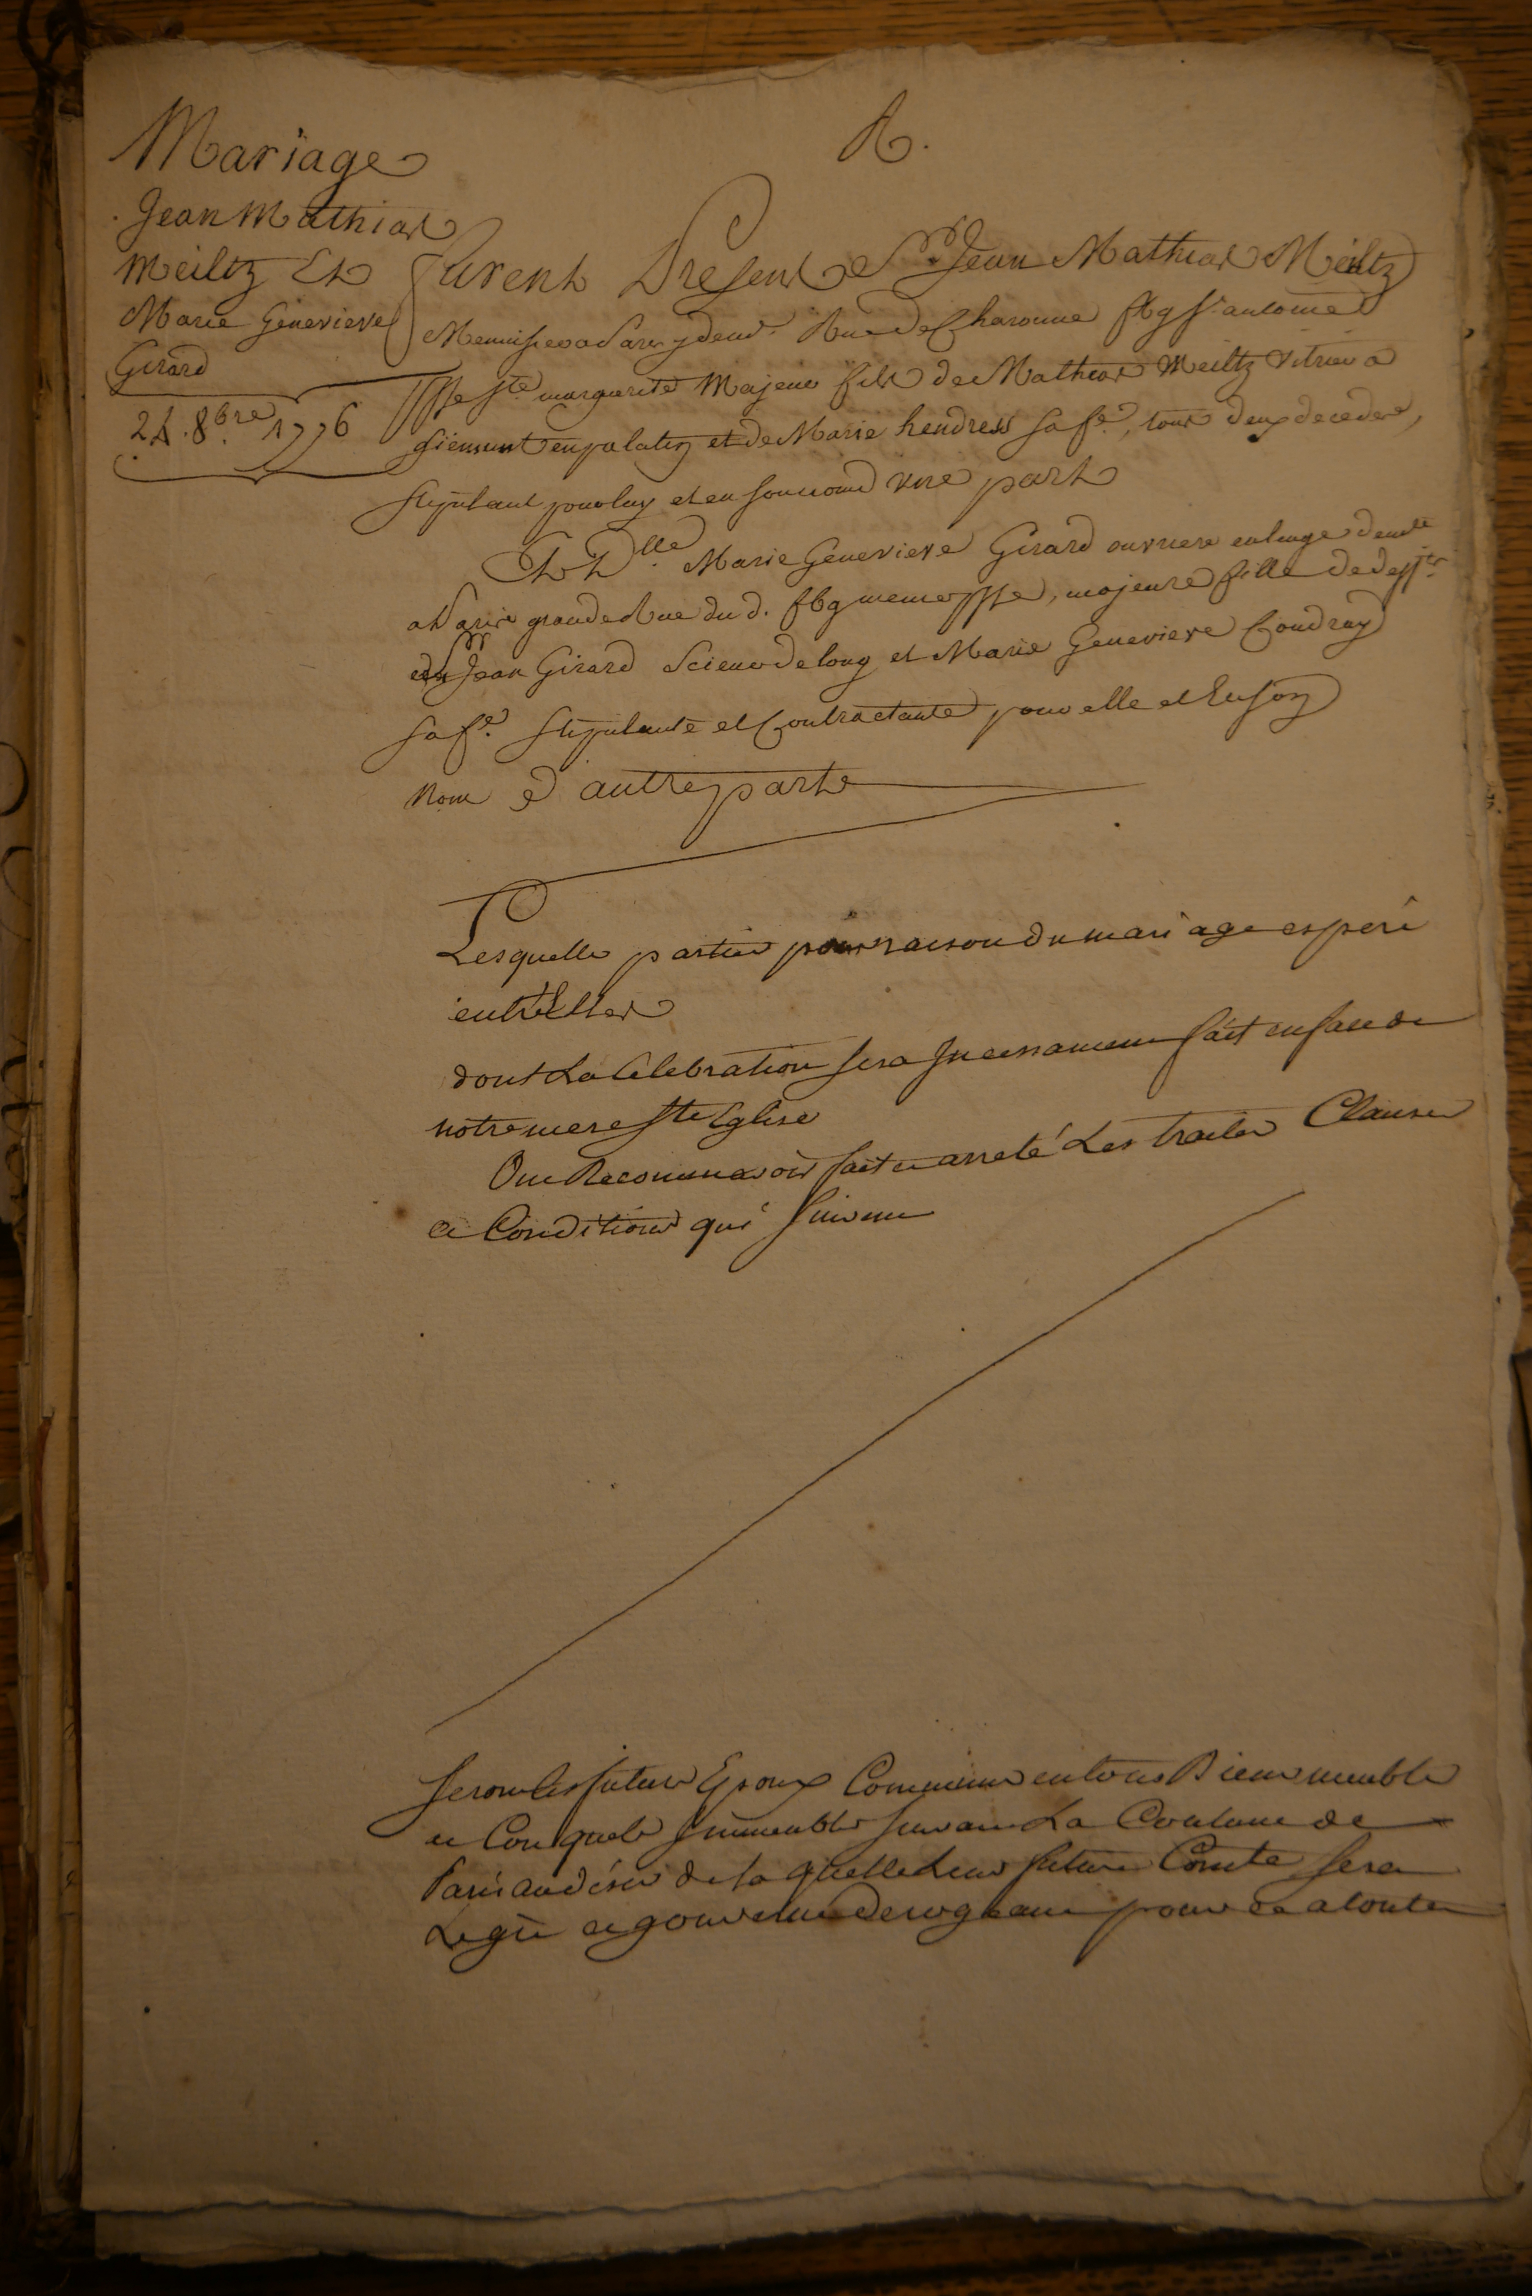 Mariage
Jean Mathias
Meiltz Et
Marie Genevieve
Girard
24. 8bre. 1776
R.
Furent Presens Sr. Jean Mathias Meiltz
Menuisier a Paris y demt. Rue de Charonne fbg St. antoine
Psse Ste margueritte Majeur fils de Mathias Meiltz vitrier a
en palatin et de Marie hendress sa fe., tous deux decedés,
stipulant pour luy et en son nom d'une part
Et Dlle. Marie Genevieve Girard ouvriere en linge demte
a Paris grande Rue du d. fbg meme Psse, majeure fille de deffts.
Sr Jean Girard Scieur de long et Marie Genevieve Coudray
sa fe. Stipulante et Contractante pour elle et En son
Nom d'autre part
Lesquelles parties pour raison du mariage esperé
entr'Elles
dont La Celebration sera Incessament fait en face de
notre mere Ste Eglise
Ont Reconnu avoir fait et arreté Les traités Clauses
et Conditions qui suivent
Seront les futurs Epoux Communs en tous Biens meubles
et Conquets Immeubles suivant La Coutume de
Paris au désir de laquelle Leur future Comté sera
Régie et gouvernée derogeant pour ce a toutes